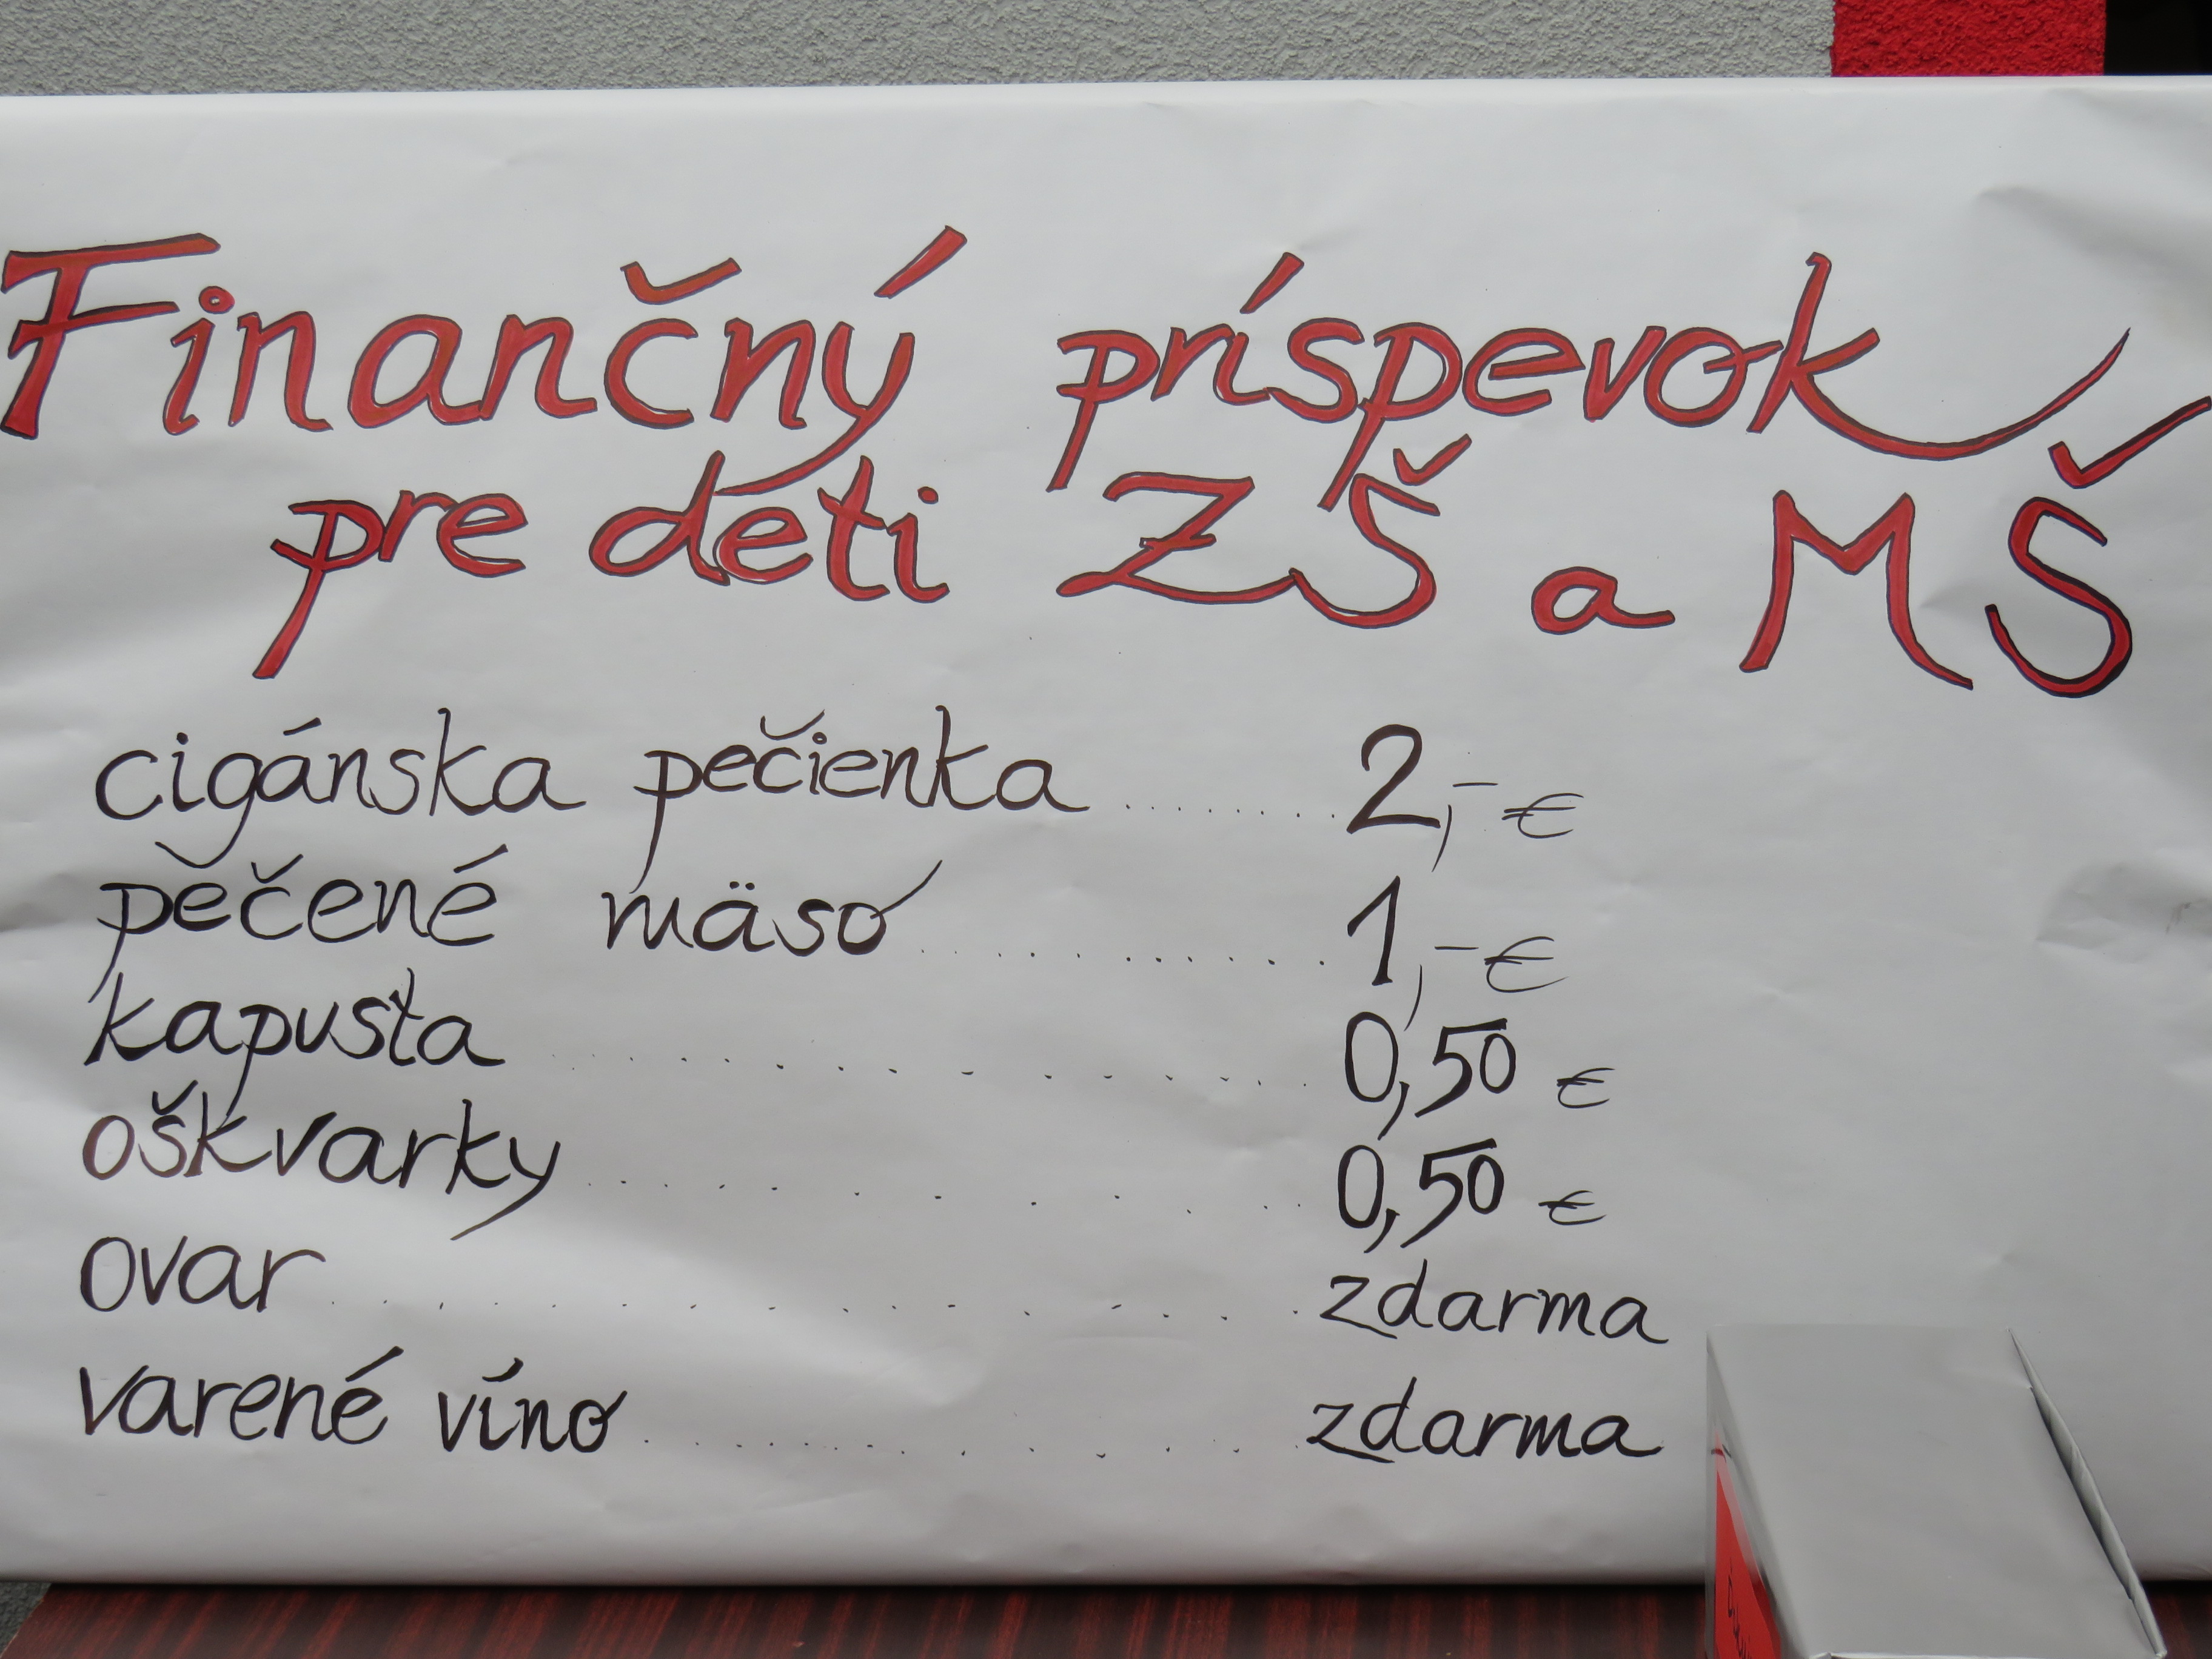 Finančný príspevok
pre deti ZŠ a MŠ
cigánska pečienka ........ 2,- €
pečené mäso ........ 1,- €
kapusta ........ 0,50 €
oškvarky ........ 0,50 €
ovar ........ zdarma
varené víno ........ zdarma